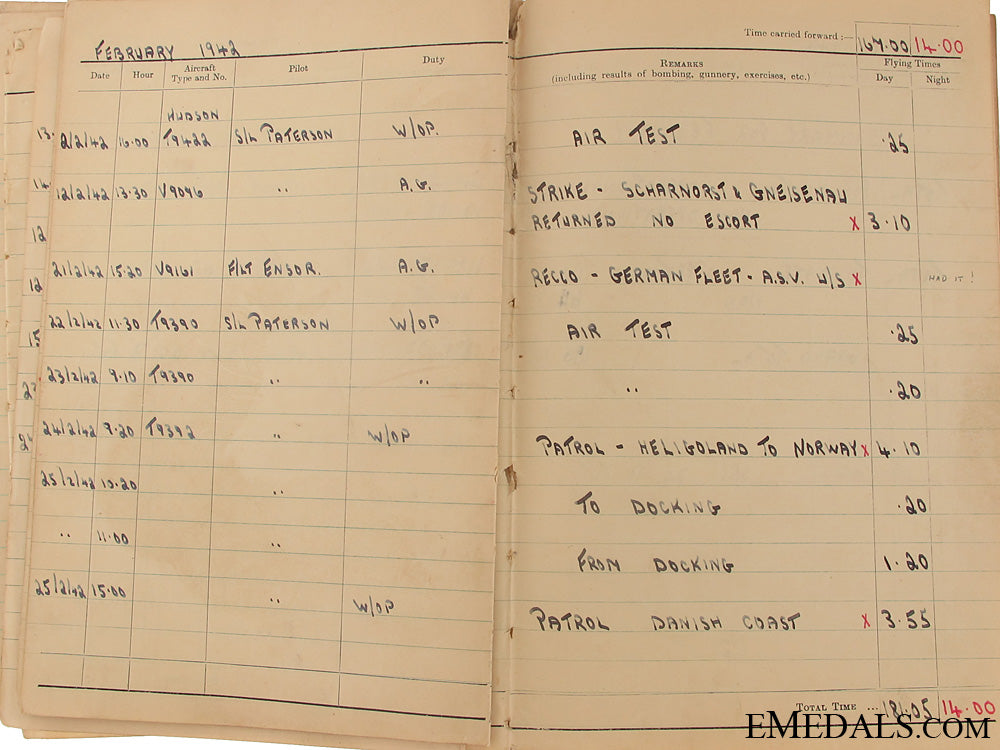 FEBRUARY 1942
Time carried forward :— 167.00 14.00
Date Hour Aircraft Type and No. Pilot Duty
REMARKS Flying Times
(including results of bombing, gunnery, exercises, etc.) Day Night
HUDSON
2/2/42 16.00 T9422 S/L PATERSON W/OP. AIR TEST .25
12/2/42 13.30 V9096 " A.G. STRIKE - SCHARNORST & GNEISENAU
RETURNED NO ESCORT X 3.10
21/2/42 15.20 V9161 F/LT ENSOR. A.G. RECCO - GERMAN FLEET - A.S.V. U/S X HAD IT!
22/2/42 11.30 T9390 S/L PATERSON W/OP AIR TEST .25
23/2/42 9.10 T9390 " " " .20
24/2/42 9.20 T9392 " W/OP PATROL - HELIGOLAND TO NORWAY X 4.10
25/2/42 10.20 " TO DOCKING .20
" 11.00 " FROM DOCKING 1.20
25/2/42 15.00 " W/OP PATROL DANISH COAST X 3.55
TOTAL TIME ... 181.05 14.00
13.
14
12
12
15
EMEDALS.COM